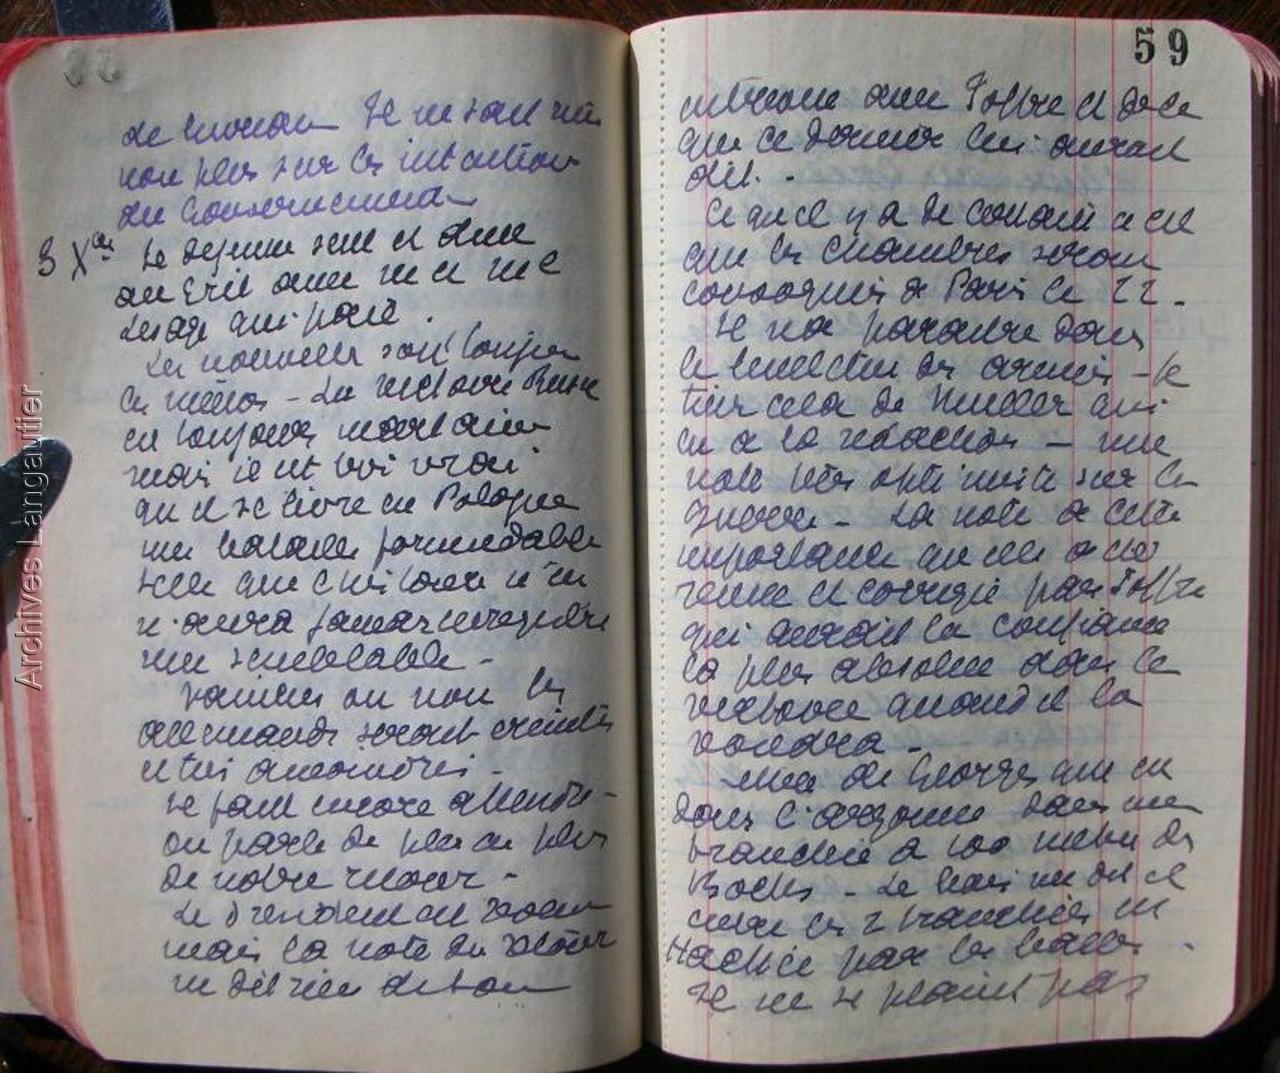 59
de Il ne sait rien
non plus sur les intentions
du Gouvernement
3 Xbre Je déjeune seul et dîne
au avec M et Mme
Lesage qui part.
Les nouvelles sont toujours
les mêmes - La victoire Russe
est toujours incertaine
mais il est vrai
qu'il se livre en Pologne
une bataille formidable
telle que l'histoire n'en
n'aura jamais enregistré
une semblable -
Vaincus ou non les
allemands seront
et très amoindris -
Il faut encore attendre -
on parle de plus en plus
de notre retour -
Le Président est
mais la note du
ne dit rien de son
entrevue avec Joffre et de ce
que ce dernier lui aurait
dit. -
Ce qu'il y a de certain c'est
que les chambres seront
convoquées à Paris le 22 -
Il va paraître dans
le bulletin des armées - je
tiens cela de qui
en a la rédaction - une
note très optimiste sur la
guerre - La note a cette
importance qu'elle a été
revue et corrigée par Joffre
qui aurait la confiance
la plus absolue dans la
victoire quand il la
voudra -
de Georges qui est
dans l'Argonne dans une
tranchée à 100 mètres des
Boches - Le bois me dit il
entre les 2 tranchées est
haché par les balles -
Il ne se plaint pas
Archives Langautier